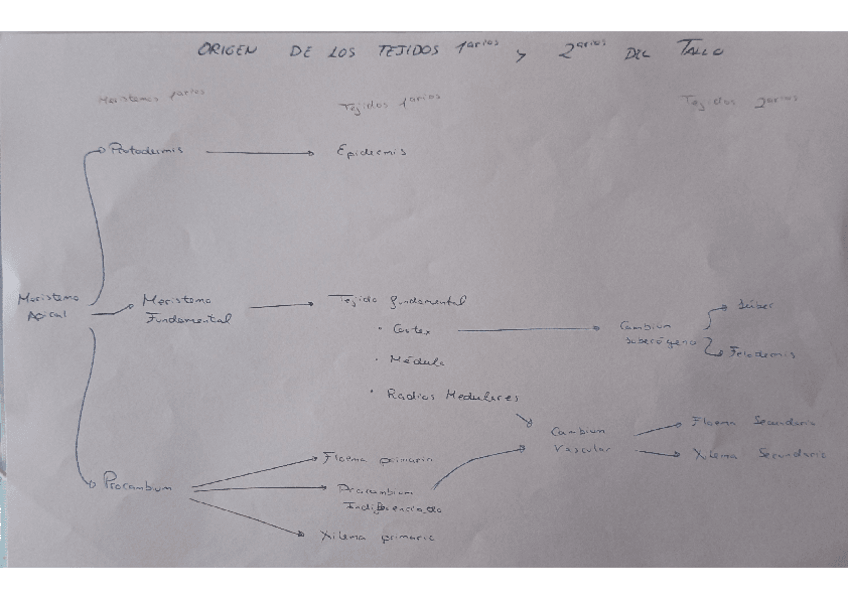 ORIGEN DE LOS TEJIDOS 1arios y 2arios DEL TALLO
Meristemos 1arios
Tejidos 1arios
Tejidos 2arios
Protodermis
Epidermis
Meristemo
Apical
Meristemo
Fundamental
Tejido fundamental
• Cortex
• Médula
• Radios Medulares
Cambium
suberógeno
Súber
Felodermis
Cambium
Vascular
Floema Secundario
Xilema Secundario
Procambium
Floema primario
Procambium
Indiferenciado
Xilema primario